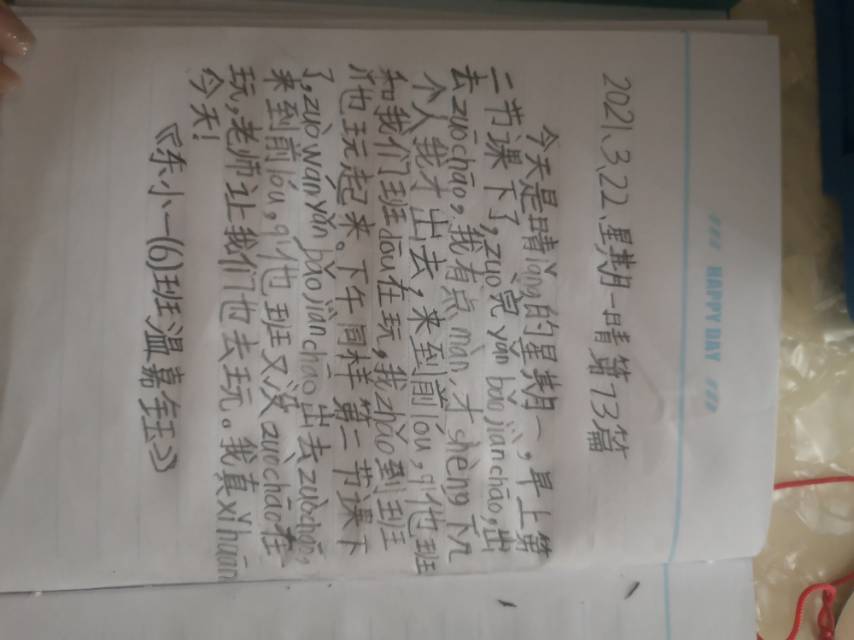 HAPPY DAY
2021、3、22、星期一晴第73篇
今天是晴lǎng的星期一，早上第
二节课下了，zuò完yǎn bǎo jiàn chāo，出
去zuò chāo，我有点màn，才shèng下几
个人我才出去，来到前lóu，qí他班
和我们班dōu在玩，我zhǎo到班
也玩起来。下午同样第二节课下
了，zuò wán yǎn bǎo jiàn chāo出去zuò chāo，
来到前lóu，qí他班又没zuò chāo在
玩，老师让我们也去玩。我真xǐ huān
今天！
《东小一(6)班温嘉钰》